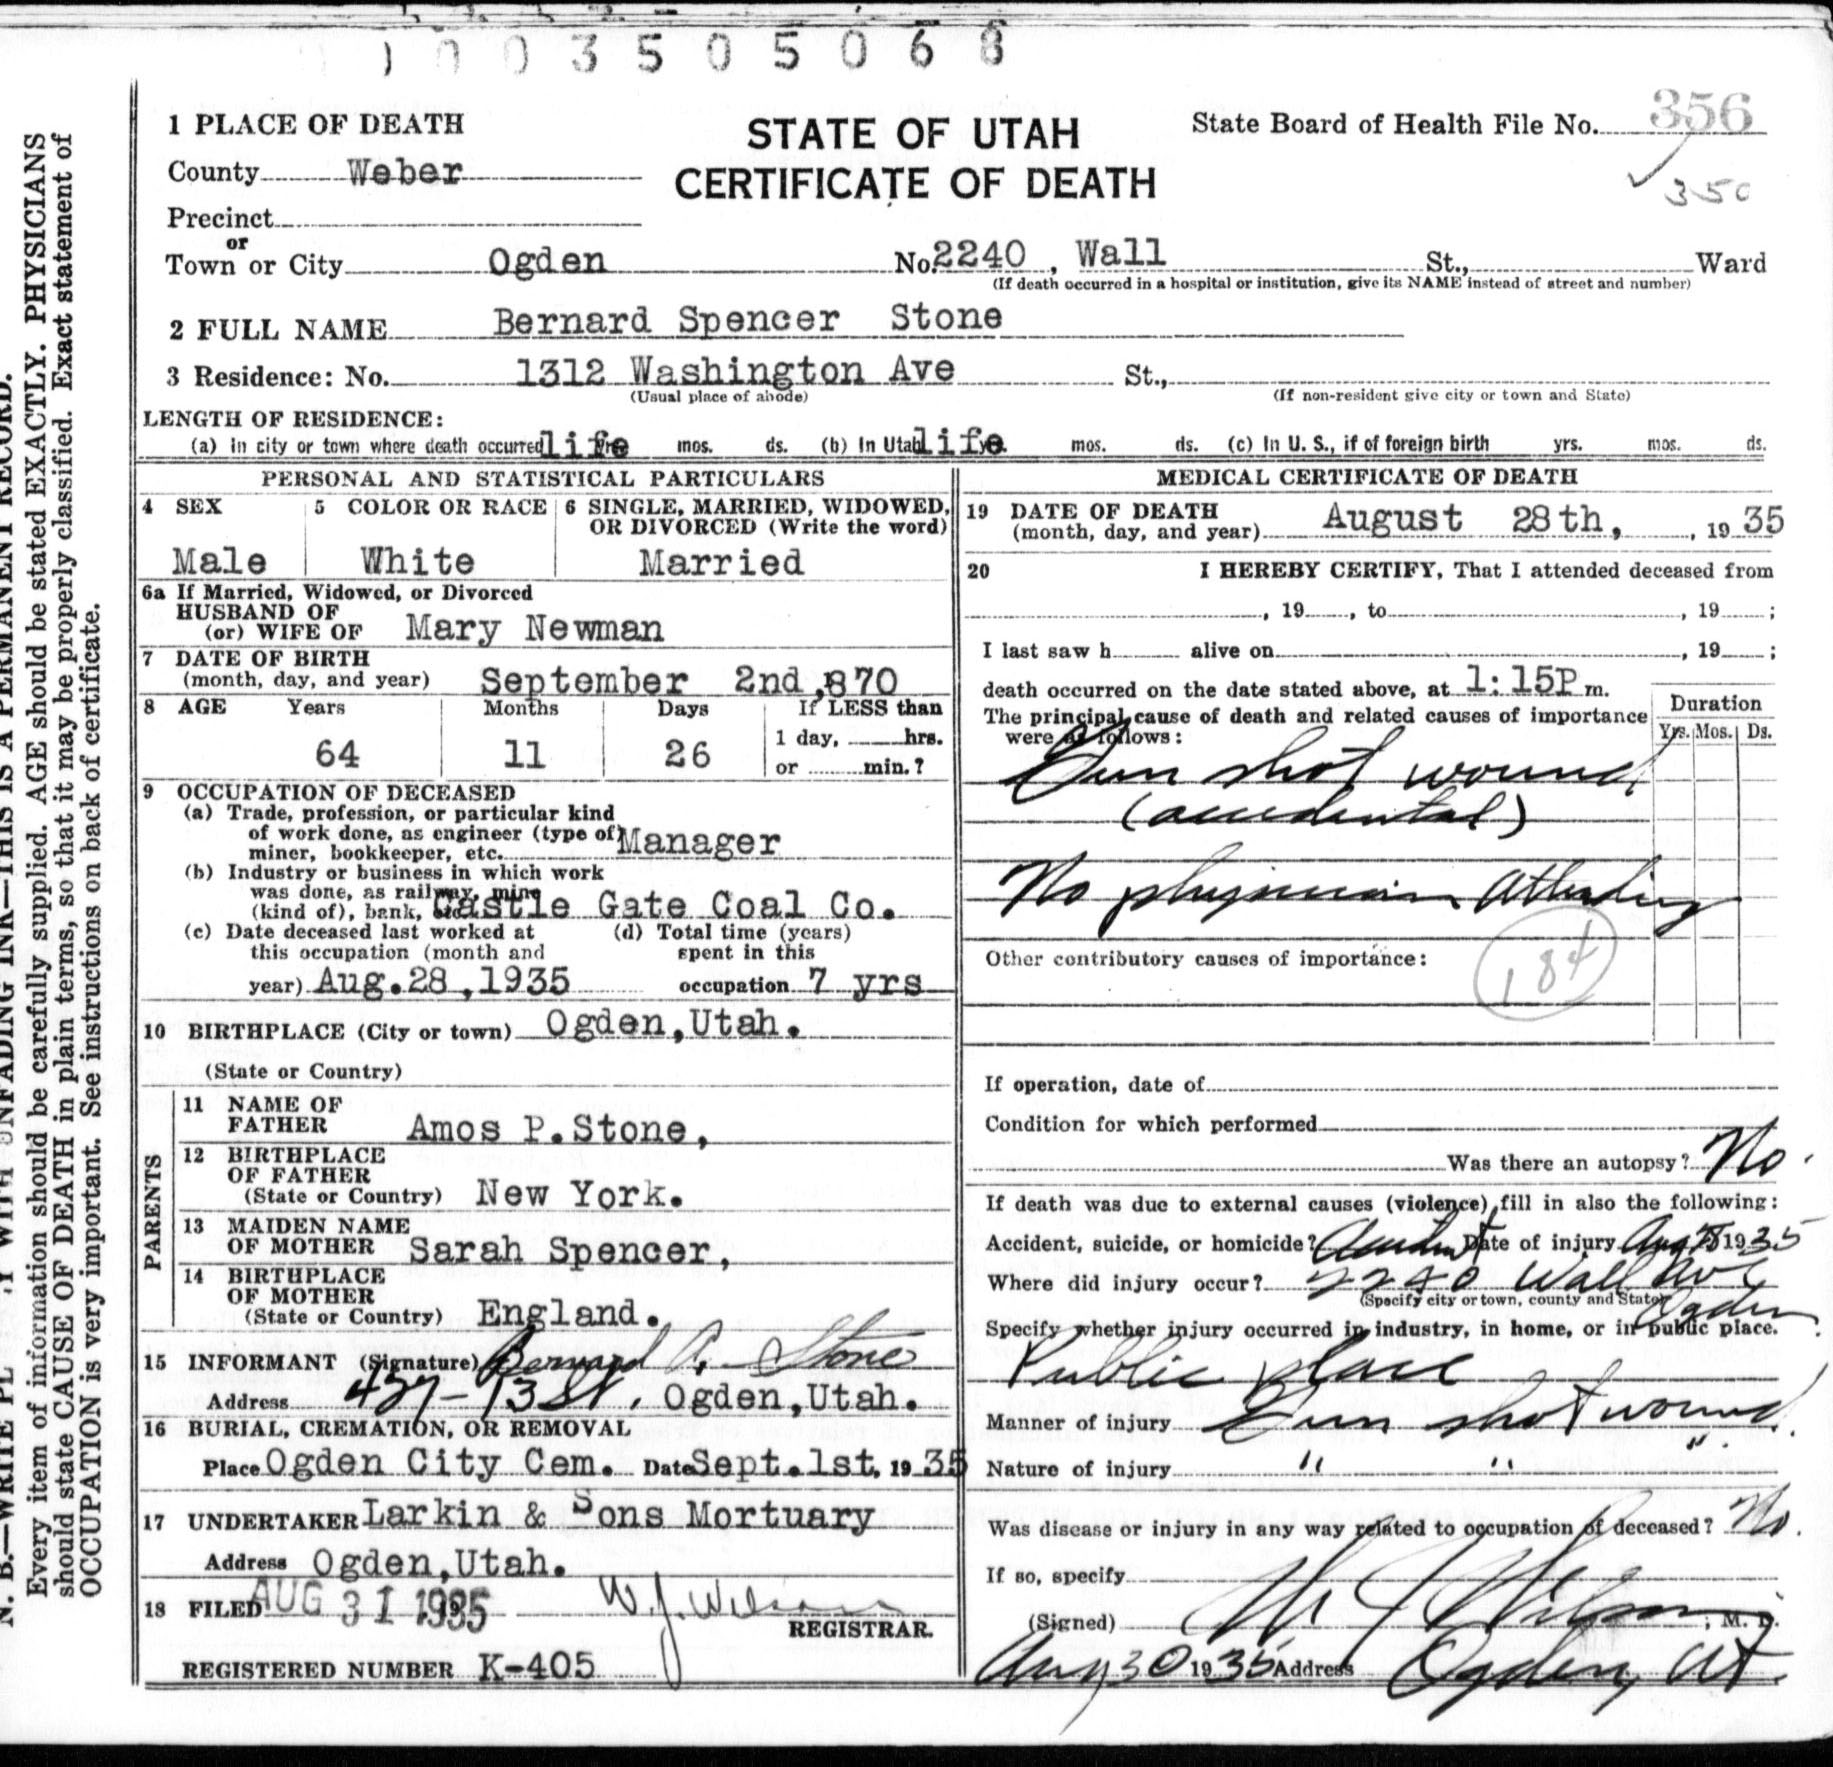 1003505068
1 PLACE OF DEATH
STATE OF UTAH
CERTIFICATE OF DEATH
State Board of Health File No. 356
350
County Weber
Precinct
or
Town or City Ogden No. 2240, Wall St., Ward
(If death occurred in a hospital or institution, give its NAME instead of street and number)
2 FULL NAME Bernard Spencer Stone
3 Residence: No. 1312 Washington Ave St.,
(Usual place of abode) (If non-resident give city or town and State)
LENGTH OF RESIDENCE:
(a) In city or town where death occurred life yrs. mos. ds. (b) In Utah life yrs. mos. ds. (c) In U. S., if of foreign birth yrs. mos. ds.
PERSONAL AND STATISTICAL PARTICULARS
4 SEX 5 COLOR OR RACE 6 SINGLE, MARRIED, WIDOWED,
OR DIVORCED (Write the word)
Male White Married
6a If Married, Widowed, or Divorced
HUSBAND OF
(or) WIFE OF Mary Newman
7 DATE OF BIRTH
(month, day, and year) September 2nd, 1870
8 AGE Years Months Days If LESS than
1 day, hrs.
64 11 26
or min.?
9 OCCUPATION OF DECEASED
(a) Trade, profession, or particular kind
of work done, as engineer (type of)
miner, bookkeeper, etc. Manager
(b) Industry or business in which work
was done, as railway, mine
(kind of), bank, etc. Castle Gate Coal Co.
(c) Date deceased last worked at (d) Total time (years)
this occupation (month and spent in this
year) Aug.28,1935 occupation 7 yrs
10 BIRTHPLACE (City or town) Ogden,Utah.
(State or Country)
PARENTS
11 NAME OF
FATHER Amos P.Stone,
12 BIRTHPLACE
OF FATHER
(State or Country) New York.
13 MAIDEN NAME
OF MOTHER Sarah Spencer,
14 BIRTHPLACE
OF MOTHER
(State or Country) England.
15 INFORMANT (Signature) Bernard P. Stone
Address 427-13 St. Ogden,Utah.
16 BURIAL, CREMATION, OR REMOVAL
Place Ogden City Cem. Date Sept.1st, 1935
17 UNDERTAKER Larkin & Sons Mortuary
Address Ogden,Utah.
18 FILED AUG 31 1935 W. J. Wilson
REGISTRAR.
REGISTERED NUMBER K-405
MEDICAL CERTIFICATE OF DEATH
19 DATE OF DEATH
(month, day, and year) August 28th, , 1935
20 I HEREBY CERTIFY, That I attended deceased from
, 19 , to , 19 ;
I last saw h alive on , 19 ;
death occurred on the date stated above, at 1:15P m.
The principal cause of death and related causes of importance
were as follows:
Duration
Yrs. Mos. Ds.
Gun shot wound
(accidental)
No physician attending
Other contributory causes of importance:
184
If operation, date of
Condition for which performed
Was there an autopsy? No.
If death was due to external causes (violence) fill in also the following:
Accident, suicide, or homicide? Accident Date of injury Aug 28 1935
Where did injury occur? 2240 Wall Ave
(Specify city or town, county and State) Ogden
Specify whether injury occurred in industry, in home, or in public place.
Public place
Manner of injury Gun shot wound.
Nature of injury " " "
Was disease or injury in any way related to occupation of deceased? No.
If so, specify
(Signed) W J Wilson , M. D.
Aug 30 1935 Address Ogden, Ut.
N. B.—WRITE WITH UNFADING INK—THIS IS A PERMANENT RECORD.
Every item of information should be carefully supplied. AGE should be stated EXACTLY. PHYSICIANS
should state CAUSE OF DEATH in plain terms, so that it may be properly classified. Exact statement of
OCCUPATION is very important. See instructions on back of certificate.